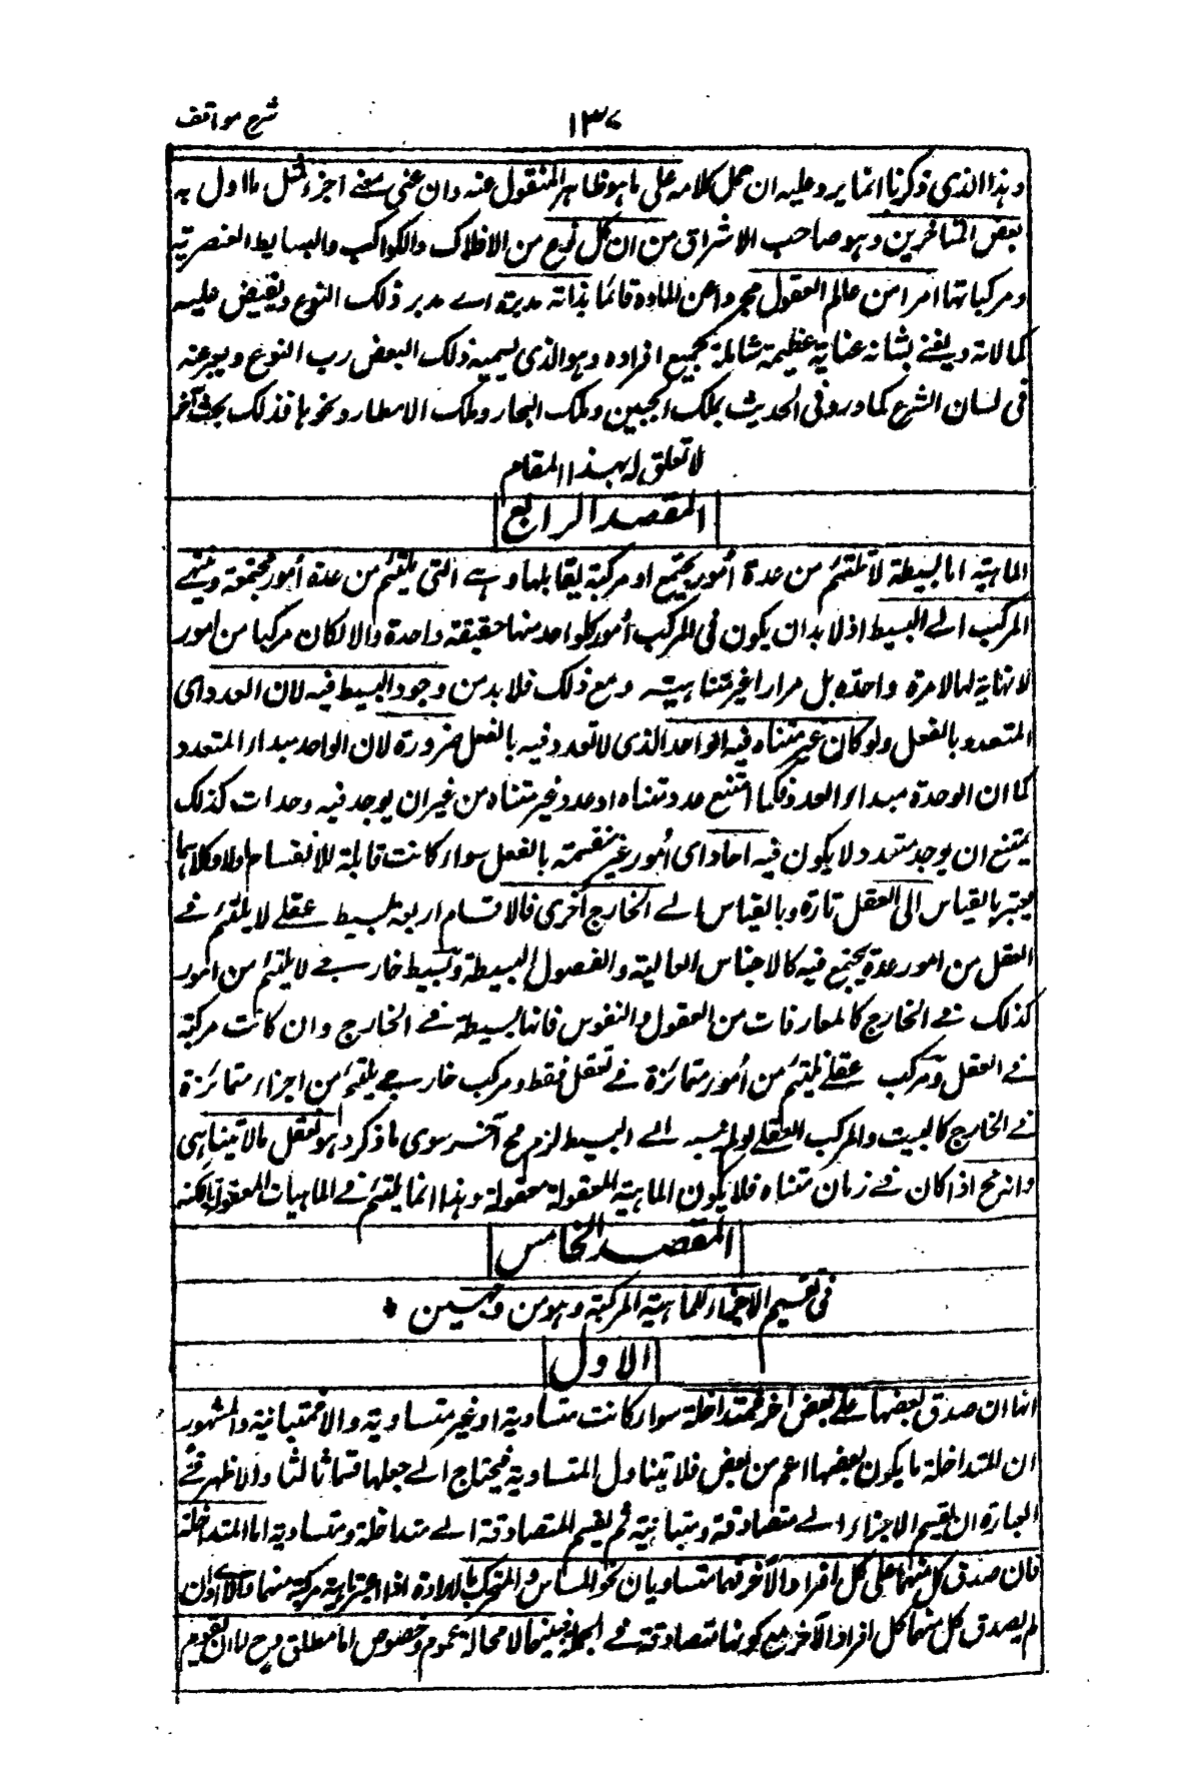 شرح مواقف
۱۳۷
وهذا الذى ذكرنا انما يرد عليه ان حمل كلامه على ما هو ظاهر المنقول عنه وان عنى معنى اخر مثل ما اول به
بعض المتاخرين وهو صاحب الاشراق من ان لكل نوع من الافلاك والكواكب والبسايط العنصرية
ومركباتها امرا من عالم العقول مجردا عن المادة قائما بذاته مدبرة اے مدبر ذلك النوع ويفيض عليه
كمالاته ويعتنے بشانه عناية عظيمة شاملة لجميع افراده وهو الذى يسميه ذلك البعض رب النوع ويعبر عنه
فى لسان الشرع كما ورد فى الحديث بملك الجبين وملك البحار وملك الامطار ونحوها فذلك بحث آخر
لا تعلق له بهذا المقام
المقصد الرابع
الماهية اما بسيطة لا تلتئم من عدة أمور يجتمع او مركبة يقابلها وهے التى يلتئم من عدة أمور مجتمعة وينتهے
المركب الے البسيط اذ لا بد ان يكون فى المركب أمور كل واحد منها حقيقة واحدة والا لكان مركبا من أمور
لا نهاية لها لا مرة واحدة بل مرارا غير متناهية ومع ذلك فلا بد من وجود البسيط فيه لان العدد اى
المتعدد بالفعل ولو كان غير متناه فيه الواحد الذى لا تعدد فيه بالفعل ضرورة لان الواحد مبداء المتعدد
كما ان الوحدة مبداء العدد فكما امتنع عدد متناه او عدد غير متناه من غير ان يوجد فيه وحدات كذلك
يمتنع ان يوجد متعدد ولا يكون فيه احاد اى أمور غير منقسمة بالفعل سواء كانت قابلة للانقسام اولا وكلاهما
يعتبر بالقياس الى العقل تارة وبالقياس الے الخارج أخرى فالاقسام اربعة بسيط عقلے لا يلتئم فے
العقل من امور عدة يجتمع فيه كالاجناس العالية والفصول البسيطة وبسيط خارجے لا يلتئم من أمور
كذلك فے الخارج كالمفارقات من العقول والنفوس فانها بسيطة فے الخارج وان كانت مركبة
فے العقل ومركب عقلے يلتئم من أمور متمائزة فے تعقل فقط ومركب خارجے يلتئم من اجزاء متمائزة
فے الخارج كالبيت والمركب العقلے لو لم ينته الے البسيط لزم مح آخر سوى ما ذكر وهو تعقل ما لا يتناهى
وانه مح اذا كان فے زمان متناه فلا يكون الماهية المعقولة معقولة وهذا انما يلتئم فے الماهيات المعقولة بالكنه
المقصد الخامس
فى تقسيم الاجزاء للماهية المركبة وهو من وجهين
الاول
انها ان صدق بعضها علے بعض اخر فمتداخلة سواء كانت متساوية او غير متساوية والا فمتباينة والمشهور
ان المتداخلة ما يكون بعضها اعم من بعض فلا يتناول المتساوية فيحتاج الے جعلها قسما ثالثا والاظهر فے
العبارة ان يقسم الاجزاء الے متصادقة ومتباينة ثم يقسم المتصادقة الے متداخلة ومتساوية اما المتداخلة
فان صدق كل منهما على كل افراد الآخر فهما متساويان نحو الحساس والمتحرك بالارادة اذا اعتبر ماهية مركبة منهما والا اى وان
لم يصدق كل منهما كل افراد الآخر مع كونها متصادقة فے الجملة فبينهما لا محالة عموم وخصوص اما مطلق وح اما ان يقوم